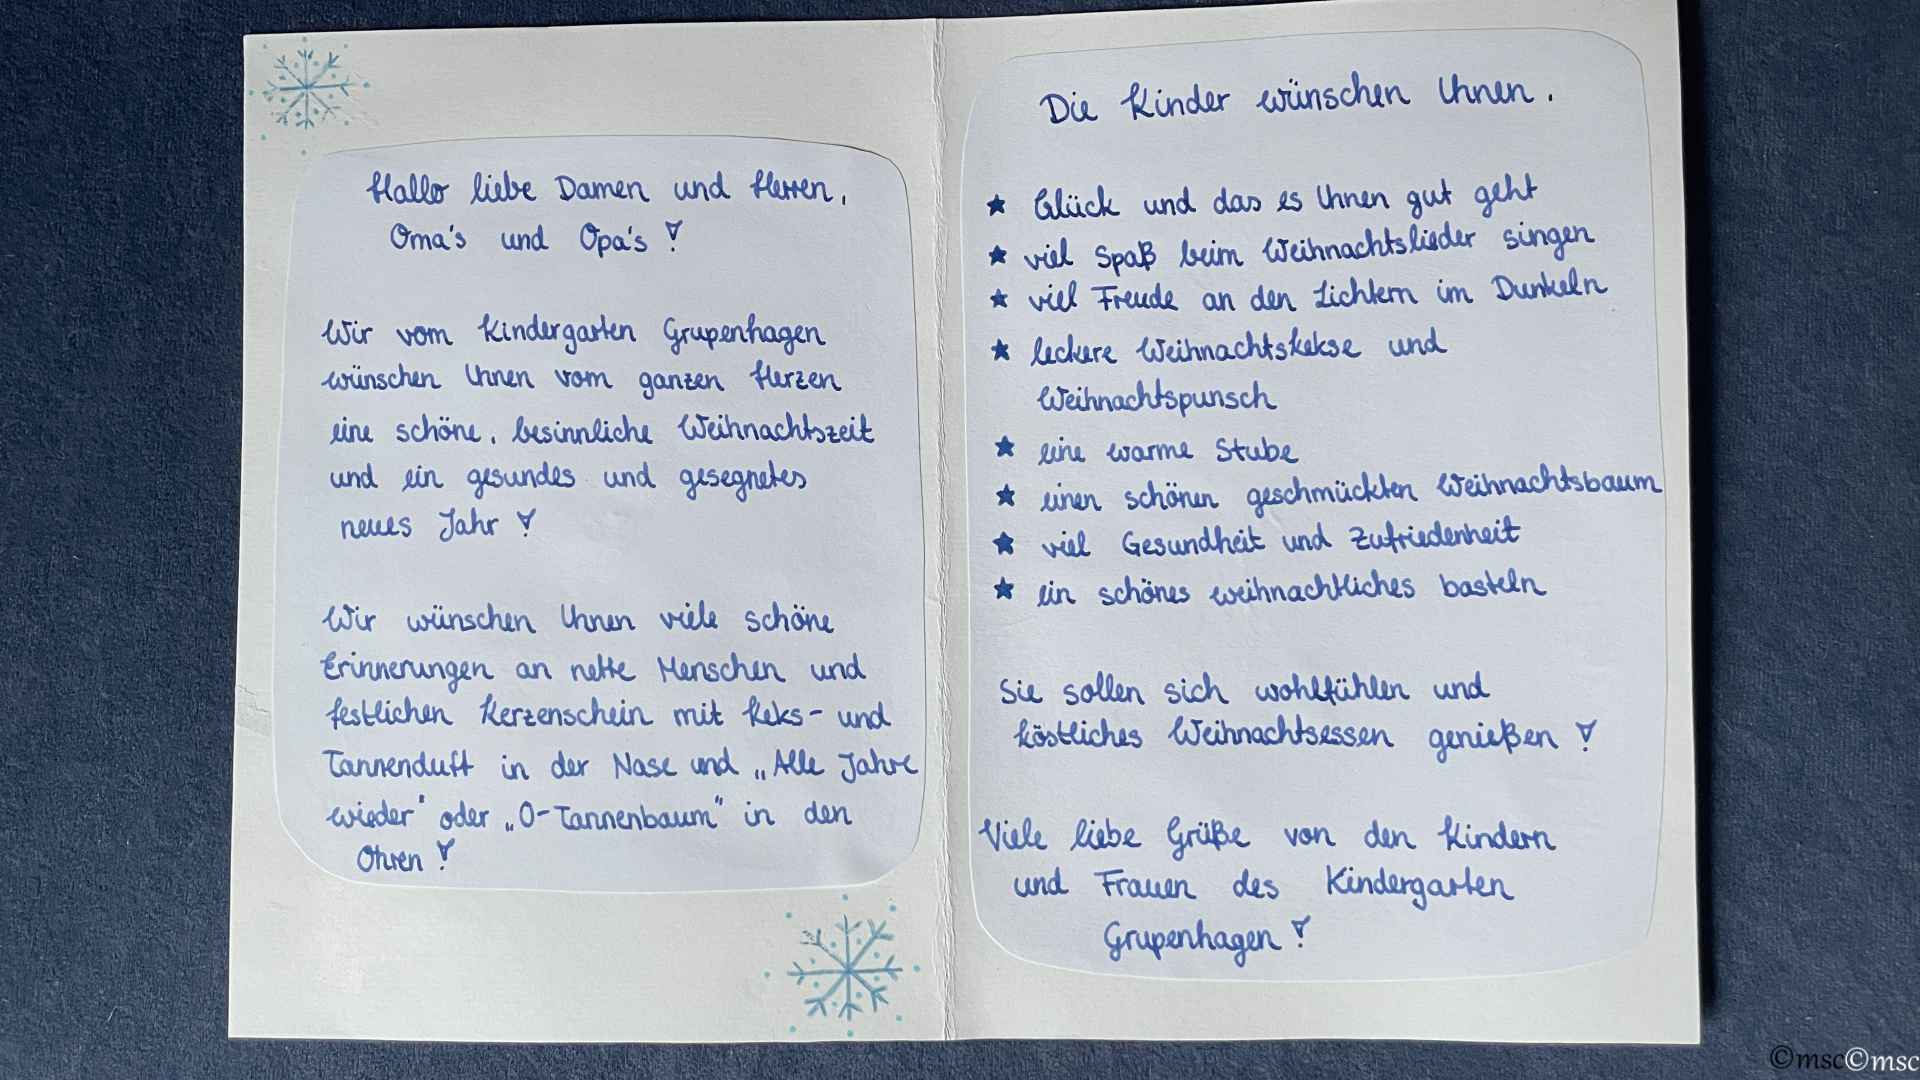 Hallo liebe Damen und Herren,
Oma's und Opa's!
Wir vom Kindergarten Grupenhagen
wünschen Ihnen vom ganzen Herzen
eine schöne, besinnliche Weihnachtszeit
und ein gesundes und gesegnetes
neues Jahr!
Wir wünschen Ihnen viele schöne
Erinnerungen an nette Menschen und
festlichen Kerzenschein mit Keks- und
Tannenduft in der Nase und „Alle Jahre
wieder" oder „O-Tannenbaum" in den
Ohren!
Die Kinder wünschen Ihnen,
★ Glück und das es Ihnen gut geht
★ viel Spaß beim Weihnachtslieder singen
★ viel Freude an den Lichtern im Dunkeln
★ leckere Weihnachtskekse und
Weihnachtspunsch
★ eine warme Stube
★ einen schönen geschmückten Weihnachtsbaum
★ viel Gesundheit und Zufriedenheit
★ ein schönes weihnachtliches basteln
Sie sollen sich wohlfühlen und
köstliches Weihnachtsessen genießen!
Viele liebe Grüße von den Kindern
und Frauen des Kindergarten
Grupenhagen!
©msc©msc